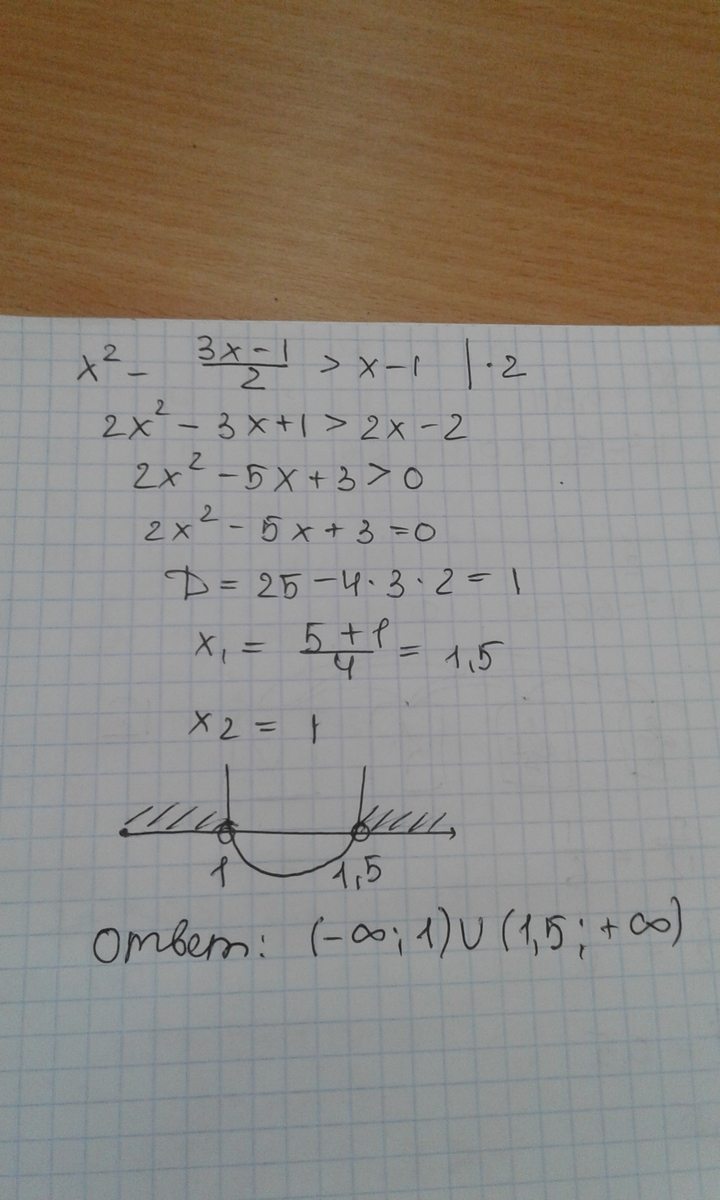 x² - (3x-1)/2 > x-1 | · 2
2x² - 3x+1 > 2x-2
2x² - 5x + 3 > 0
2x² - 5x + 3 = 0
D = 25 - 4 · 3 · 2 = 1
x₁ = (5+1)/4 = 1,5
x₂ = 1
1 1,5
Ответ: (-∞; 1) ∪ (1,5; +∞)